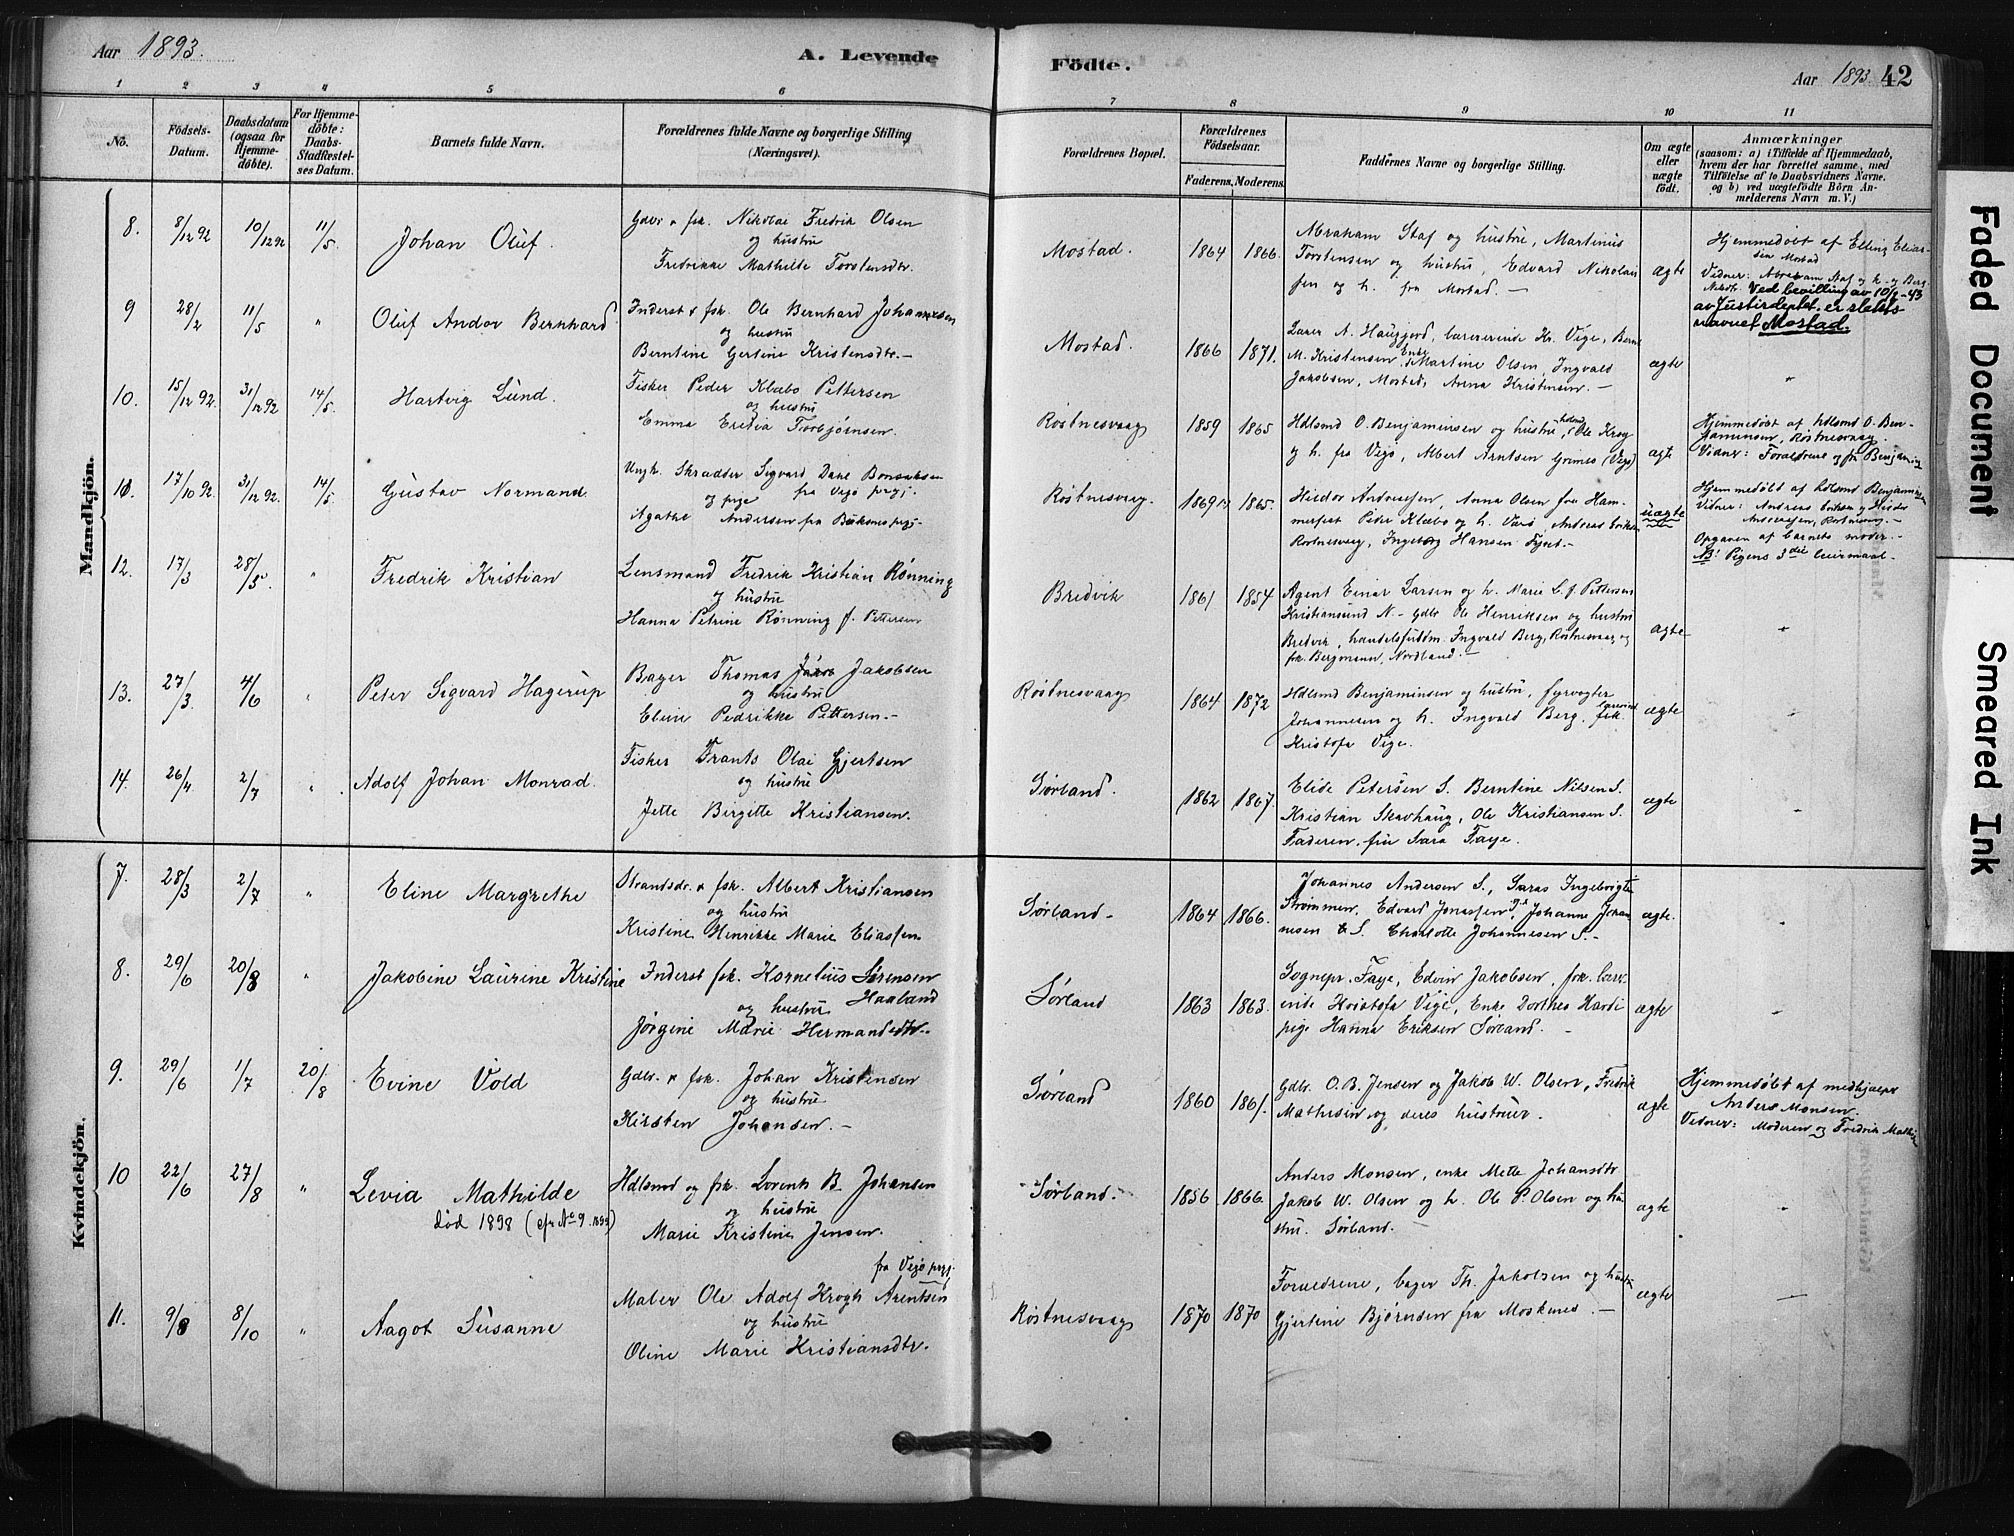 Aar 1893.
A. Levende
Födte.
Aar 1893 42
1 2 3 4 5 6 7 8 9 10 11
No.
Födsels-Datum.
Daabsdatum (ogsaa for Hjemme-döbte).
For Hjemme-döbte: Daabs-Stadfestel-ses Datum.
Barnets fulde Navn.
Forældrenes fulde Navne og borgerlige Stilling (Næringsvei).
Forældrenes Bopæl.
Forældrenes Födselsaar.
Faderens. Moderens.
Faddernes Navne og borgerlige Stilling.
Om ægte eller uægte födt.
Anmærkninger
(saasom: a) i Tilfælde af Hjemmedaab,
hvem der har forrettet samme, med
Tilföielse af to Daabsvidners Navne,
og b) ved uægtefödte Börn An-
melderens Navn m. V.)
Mandkjön.
8. 8/12 92 10/12 92 11/5. Johan Oluf.
Gdbr & fsk. Nikolai Fredrik Olsen
og hustru
Fredrikke Mathilde Torstensdtr.
Mostad. 1864 1866.
Abraham Staf og hustru, Martinus
Torstensen og hustru, Edvard Nikolai
sen og h. fra Mostad. —
ægte
Hjemmedøbt af Elling Elias-
sen Mostad
Vidner: Abraham Staf og h. og Berg
Ved bevilling av 10/2-43
av Justisdeptet. er slekts-
navnet Mostad.
9 28/2 11/5 " Oluf Andor Bernhard
Inderst & fsk. Ole Bernhard Johannesen
og hustru
Berntine Gertine Kristensdtr.—
Mostad. 1866 1871.
Lærer A. Haugjord, lærerinde Kr. Vige, Bernt
M. Kristensen, Enke Martine Olsen, Ingvald
Jakobsen, Mostad, Anna Kristensen. —
ægte "
10. 15/12 92. 31/12 92 14/5. Hartvig Lund.
Fisker Peder Klæbo Pettersen
og hustru
Emma Eredia Torbjørnsen.
Røstnesvaag 1859 1865
Hdlsmd O. Benjaminsen og hustru, Ole Krog
og h. fra Vegø, Albert Arntsen Grimes (Vegø)
ægte
Hjemmedøbt af hdlsmd O. Ben-
jaminsen, Røstnesvaag.
Vidner: Forældrene og fru Benjamins
11. 17/10 92. 31/12 92. 14/5. Gustav Normand.
Ungk. Skrædder Sigvard Dane Bonsaksen
og pige fra Vegø prgj.
Agathe Andersen fra Buksnes prgj.
Røstnesvaag. 1869 1865.
Heidor Andreassen, Anna Olsen fra Ham-
merfest Peter Klæbo og h. Værø, Andreas Eriksen
Røstnesvaag, Ingeborg Hansen Fyret.—
uægte
Hjemmedøbt af hdlsmd Benjaminsen
Vidner: Andreas Eriksen og Heidor
Andreassen, Røstnesvaag.—
Opgaven af barnets moder.—
NB! Pigens 3die leiermaal.
12. 17/3 28/5. " Fredrik Kristian
Lensmand Fredrik Kristian Rønning
og hustru
Hanna Petrine Rønning f. Pettersen
Bredvik 1861 1854
Agent Einar Larsen og h. Marie L. f. Pettersen
Kristiansund N.— gdbr Ole Henriksen og hustru
Bredvik, handelsfuldm. Ingvald Berg, Røstnesvaag og
frk. Bergmann, Nordland.—
ægte "
13. 27/3 4/6 " Peter Sigvard Hagerup
Bager Thomas Jakobsen
og hustru
Eline Pedrikke Pettersen.—
Røstnesvaag 1864 1872
Hdlsmd Benjaminsen og hustru, fyrvogter
Johannesen og h. Ingvald Berg, lærerinde frk.
Kristofa Vige.
ægte "
14. 26/4 2/7 " Adolf Johan Monrad.
Fisker Frants Olai Gjertsen
og hustru
Jette Birgitte Kristiansen.
Sørland. 1862 1867.
Elide Petersen S. Berntine Nilsen S.
Kristian Skavhaug, Ole Kristiansen S.
Faderen, fru Sara Faye.
ægte "
Kvindekjön.
7. 28/3 2/7 " Eline Margrethe
Strandsdr. & fsk. Albert Kristiansen
og hustru
Kristine Henrikke Marie Eliassen
Sørland— 1864 1866.
Johannes Andersen S., Saras Ingebrigts
Strømmen, Edvard Jonassen, Johanne Johan-
nesen S. Charlotte Johannesen S.—
ægte. "
8. 29/6 20/8 " Jakobine Laurine Kristine
Inderst fsk. Kornelius Sørensen
og hustru Haaland
Jørgine Marie Hermansdtr.—
Sørland 1863 1863.
Sognepr. Faye, Edvin Jakobsen, frk. lærer-
inde Kristofa Vige, Enke Dorthea Hardi
pige Hanna Eriksen Sørland. —
ægte "
9. 29/6 1/7 20/8 Evine Vold
Gdbr. & fsk. Johan Kristensen
og hustru
Kirsten Johansen.—
Sørland 1860 1861.
Gdbr. O. B. Jensen og Jakob W. Olsen, Fredrik
Mathisen og deres hustruer.
ægte
Hjemmedøbt af medhjælper
Anders Monsen.
Vidner: Moderen og Fredrik Mathis
10 22/6 27/8 " Levia Mathilde
død 1898 (cfr No 9. 1899)
Hdlsmd og fsk. Lorents B. Johansen
og hustru
Marie Kristine Jensen.
Sørland. 1856 1866.
Anders Monsen, enke Mette Johansdtr
Jakob W. Olsen og h. Ole P. Olsen og hu
stru. Sørland.
ægte "
11. 9/8 8/10 " Aagot Susanne
fra Vegø prgj.
Maler Ole Adolf Krogh Arentsen
og hustru
Oline Marie Kristiansdtr.
Røstnesvaag 1870 1870
Forældrene, bager Th. Jakobsen og hustru
Gjertine Bjørnsen fra Moskenes. —
ægte —
Faded Document
Smeared Ink